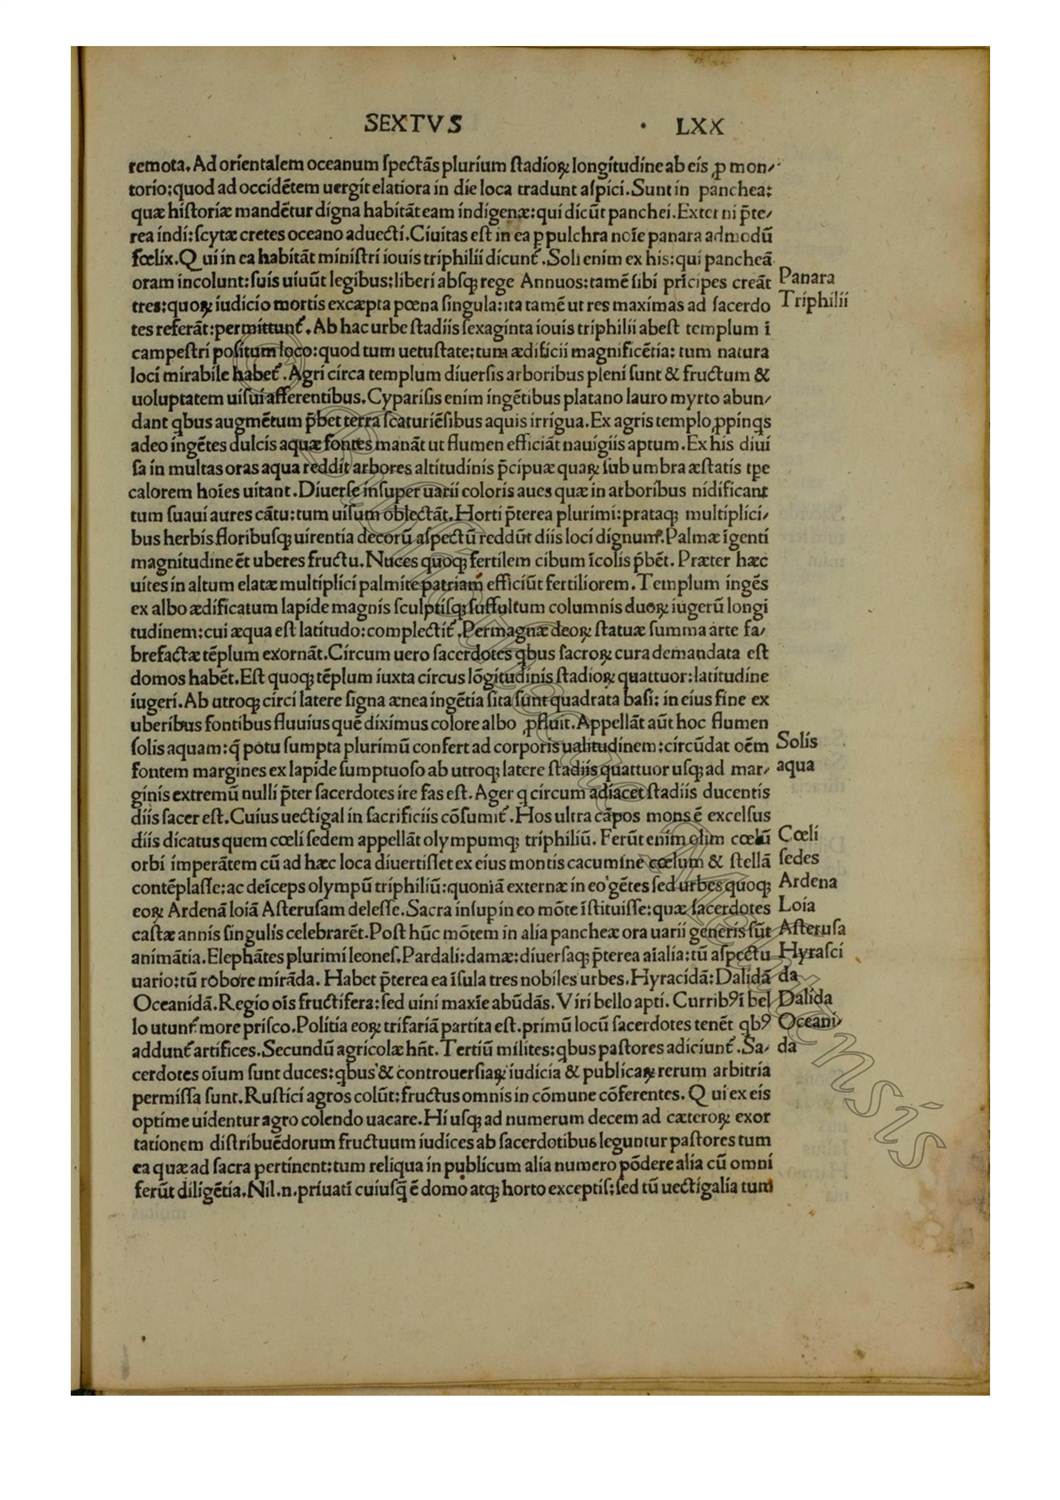 SEXTVS LXX
remota. Ad orientalem oceanum ſpectãs plurium ſtadioꝝ longitudine ab eis ꝓ mon⸗
torio: quod ad occidẽtem uergit elatiora in die loca tradunt aſpici. Sunt in panchea:
quæ hiſtoriæ mandẽtur digna habitãt eam indigenæ: qui dicũt panchei. Exter ni p̃te⸗
rea indi: ſcytæ cretes oceano aduecti. Ciuitas eſt in ea ꝑ pulchra noĩe panara admodũ
fœlix. Q ui in ea habitãt miniſtri iouis triphilii dicunt᷑. Soli enim ex his: qui pancheã
oram incolunt: ſuis uiuũt legibus: liberi abſqꝫ rege Annuos: tamẽ ſibi prĩcipes creãt
tres: quoꝝ iudicio mortis excæpta pœna ſingula: ita tamẽ ut res maximas ad ſacerdo
tes referãt: permittunt᷑. Ab hac urbe ſtadiis ſexaginta iouis triphilii abeſt templum ĩ
campeſtri poſitum loco: quod tum uetuſtate: tum ædificii magnificẽtia: tum natura
loci mirabile habet᷑. Agri circa templum diuerſis arboribus pleni ſunt & fructum &
uoluptatem uiſui afferentibus. Cypariſis enim ingẽtibus platano lauro myrto abun⸗
dant qbus augmẽtum p̃bet terra ſcaturiẽſibus aquis irrigua. Ex agris templo ꝓpinqs
adeo ingẽtes dulcis aquæ fontes manãt ut flumen efficiãt nauigiis aptum. Ex his diui
ſa in multas oras aqua reddit arbores altitudinis p̃cipuæ quaꝝ ſub umbra æſtatis tꝑe
calorem hoĩes uitant. Diuerſe inſuper uarii coloris aues quæ in arboribus nidificant
tum ſuaui aures cãtu: tum uiſum oblectãt. Horti p̃terea plurimi: prataqꝫ multiplici⸗
bus herbis floribuſqꝫ uirentia decorũ aſpectũ reddũt diis loci dignum. Palmæ ĩgenti
magnitudine ẽt uberes fructu. Nuces quoqꝫ fertilem cibum ĩcolis p̃bẽt. Præter hæc
uites in altum elatæ multiplici palmite patriam efficiũt fertiliorem. Templum ingẽs
ex albo ædificatum lapide magnis ſculptiſqꝫ ſuffultum columnis duoꝝ iugerũ longi
tudinem: cui æqua eſt latitudo: complectit᷑. Permagnæ deoꝝ ſtatuæ ſumma arte fa⸗
brefactæ tẽplum exornãt. Circum uero ſacerdotes qbus ſacroꝝ cura demandata eſt
domos habẽt. Eſt quoqꝫ tẽplum iuxta circus lõgitudinis ſtadioꝝ quattuor: latitudine
iugeri. Ab utroqꝫ circi latere ſigna ænea ingẽtia ſita ſunt quadrata baſi: in eius fine ex
uberibus fontibus fluuius quẽ diximus colore albo ꝓfluit. Appellãt aũt hoc flumen
ſolis aquam: q̃ potu ſumpta plurimũ confert ad corporis ualitudinem: circũdat oẽm
fontem margines ex lapide ſumptuoſo ab utroqꝫ latere ſtadiis quattuor uſqꝫ ad mar⸗
ginis extremũ nulli p̃ter ſacerdotes ire fas eſt. Ager q circum adiacet ſtadiis ducentis
diis ſacer eſt. Cuius uectigal in ſacrificiis cõſumit᷑. Hos ultra cãpos mons ẽ excelſus
diis dicatus quem cœli ſedem appellãt olympumqꝫ triphiliũ. Ferũt enim olim cœlũ
orbi imperãtem cũ ad hæc loca diuertiſſet ex eius montis cacumine cœlum & ſtellã
contẽplaſſe: ac deĩceps olympũ triphiliũ: quoniã externæ in eo gẽtes ſed urbes quoqꝫ
eoꝝ Ardenã loiã Aſteruſam deleſſe. Sacra inſup in eo mõte ĩſtituiſſe: quæ ſacerdotes
caſtæ annis ſingulis celebrarẽt. Poſt hũc mõtem in alia pancheæ ora uarii generis ſũt
animãtia. Elephãtes plurimi leoneſ. Pardali: damæ: diuerſaqꝫ p̃terea aĩalia: tũ aſpectu
uario: tũ robore mirãda. Habet p̃terea ea ĩſula tres nobiles urbes. Hyracidã: Dalidã
Oceanidã. Regio oĩs fructifera: ſed uini maxĩe abũdãs. Viri bello apti. Curribꝰ ĩ bel
lo utunt᷑ more priſco. Politia eoꝝ trifariã partita eſt. primũ locũ ſacerdotes tenẽt qbꝰ
addunt᷑ artifices. Secundũ agricolæ hñt. Tertiũ milites: qbus paſtores adiciunt᷑. Sa⸗
cerdotes oĩum ſunt duces: qbus & controuerſiaꝝ iudicia & publicaꝝ rerum arbitria
permiſſa ſunt. Ruſtici agros colũt: fructus omnis in cõmune cõferentes. Q ui ex eis
optime uidentur agro colendo uacare. Hi uſqꝫ ad numerum decem ad cæteroꝝ exor
tationem diſtribuẽdorum fructuum iudices ab ſacerdotibus leguntur paſtores tum
ea quæ ad ſacra pertinent: tum reliqua in publicum alia numero põdere alia cũ omni
ferũt diligẽtia. Nil .n. priuati cuiuſq̃ ẽ domo atqꝫ horto exceptiſ: ſed tũ uectigalia tum
Panara
Triphilii
Solis
aqua
Cœli
ſedes
Ardena
Loia
Aſteruſa
Hyraſci
da
Dalida
Oceani⸗
da